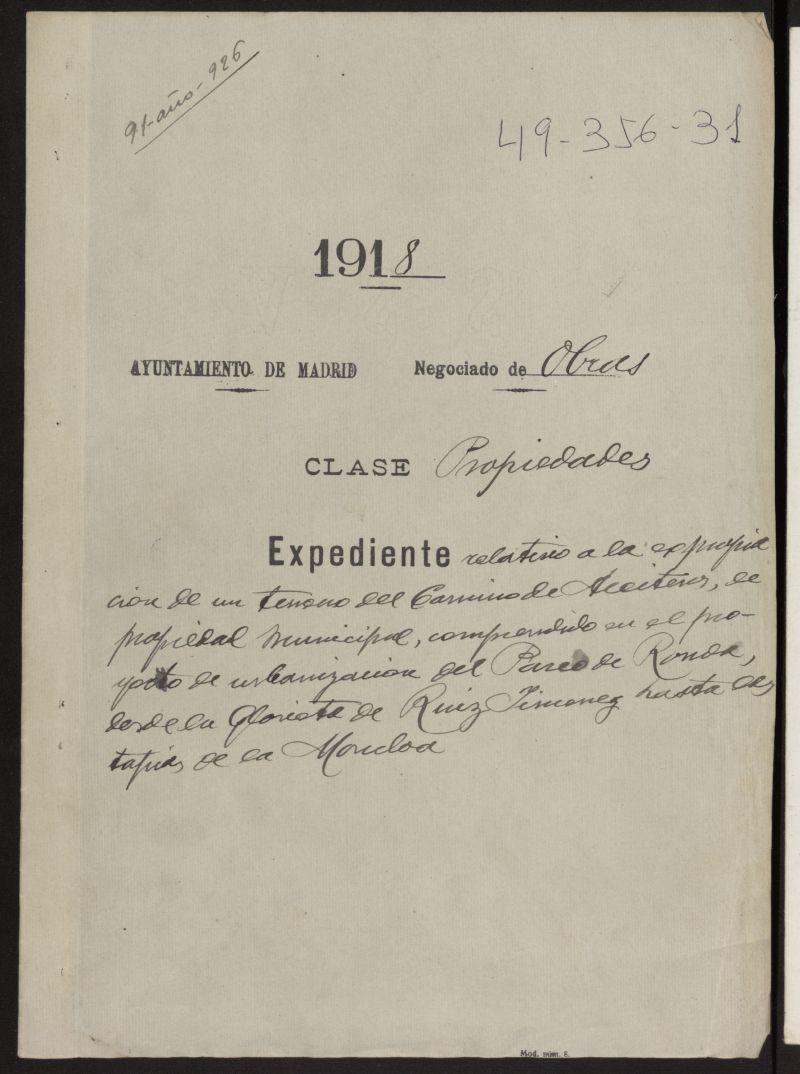 91-año-926
49-356-31
1918
AYUNTAMIENTO DE MADRID Negociado de Obras
CLASE Propiedades
Expediente relativo a la expropia
ción de un terreno del Camino de Aceiteros, de
propiedad Municipal, comprendido en el pro-
yecto de urbanización del Paseo de Ronda,
desde la Glorieta de Ruiz Jimenez hasta las
tapias de la Moncloa
Mod. núm. 8.